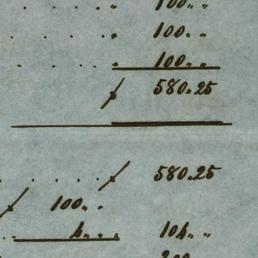 100. "
100. "
100. "
580.25
580.25
100. "
4. " 104. "